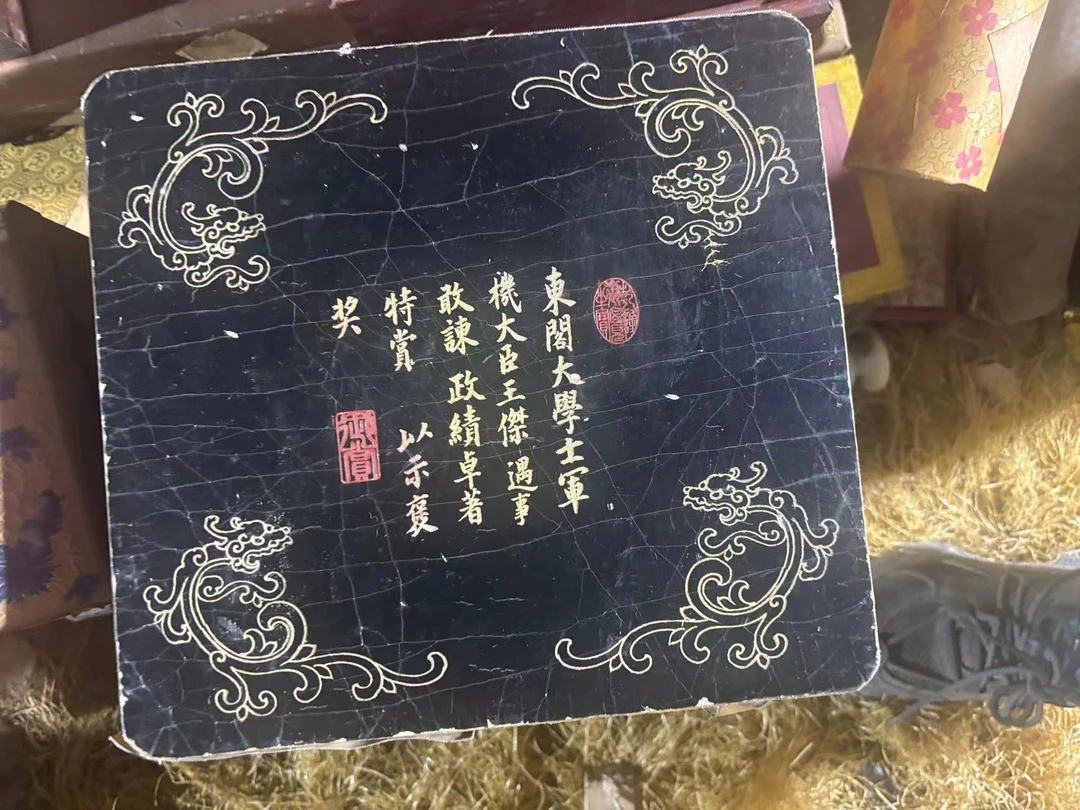 東閣大學士軍
機大臣王傑遇事
敢諫政績卓著
特賞以示褒
奖